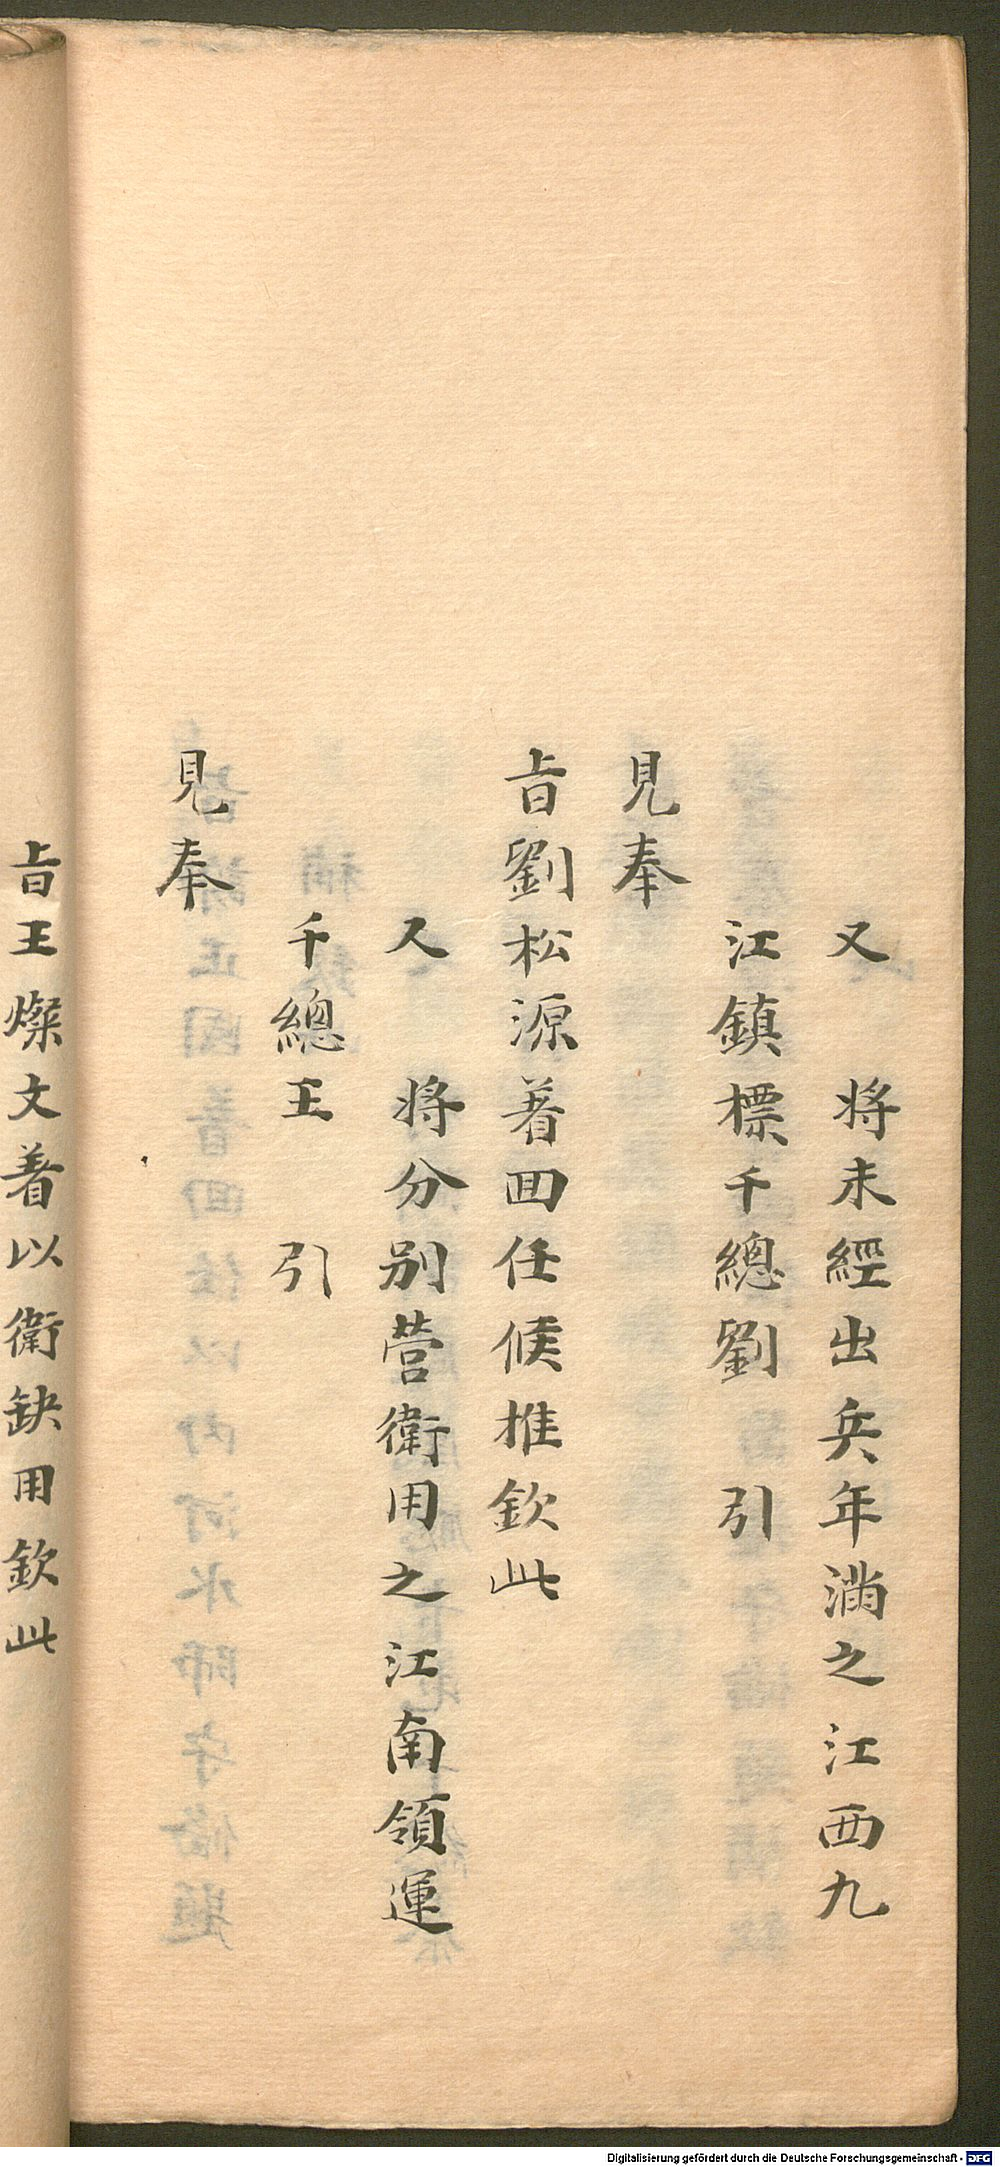 又　將未經出兵年滿之江西九
江鎮標千總劉　引
見奉
旨劉松源着囬任候推欽此
又　將分别营衛用之江南領運
千總王　引
見奉
旨王燦文着以衛缺用欽此
Digitalisierung gefördert durch die Deutsche Forschungsgemeinschaft - DFG